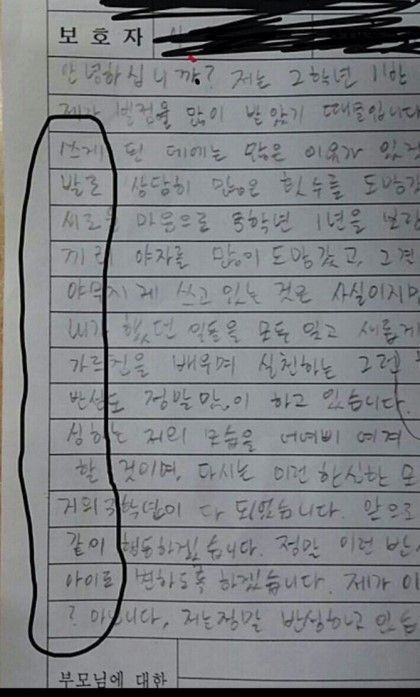 보 호 자
안녕하십니까? 저는 2학년 11반
제가 벌점을 많이 받았기 때문입니다
쓰게 된 데에는 많은 이유가 있겠
발로 상당히 많은 횟수를 도망갔
새로운 마음으로 3학년 1년을 보람
끼리 야자를 많이 도망갔고, 그 전
야무지게 쓰고 있는 것은 사실이지만
내가 했던 일들을 모두 잊고 새롭게
가르침을 배우며 실천하는 그런
반성도 정말 많이 하고 있습니다
심하는 저의 모습을 어여삐 여겨
할 것이며, 다시는 이런 한심한 모
거의 3학년이 다 되었습니다. 앞으로
같이 행동하겠습니다. 정말 이런 반
아이로 변하도록 하겠습니다. 제가 이
? 아닙니다, 저는 정말 반성하고 있습
부모님에 대한